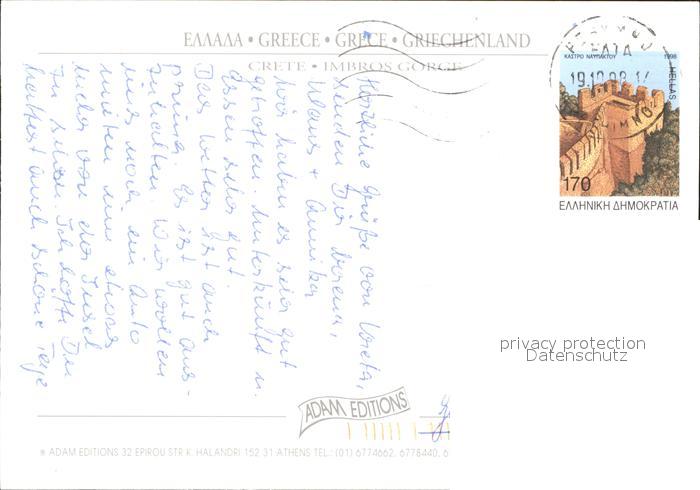 ΕΛΛΑΔΑ • GREECE • GRÈCE • GRIECHENLAND
CRETE • IMBROS GORGE
ΚΑΣΤΡΟ ΝΑΥΠΑΚΤΟΥ 1998
HELLAS
170
ΕΛΛΗΝΙΚΗ ΔΗΜΟΚΡΑΤΙΑ
19.10.98
Herzliche Grüße von Kreta,
senden Dir
Klaus + Annika
Wir haben es sehr gut
getroffen. Unterkunft u.
Essen sehr gut.
Das Wetter ist auch
prima. Es ist gut aus-
zuhalten. Wir wollen
uns noch ein Auto
mieten um etwas
mehr von der Insel
zu sehen. Ich hoffe Du
hattest auch schöne Tage
privacy protection
Datenschutz
ADAM EDITIONS
ADAM EDITIONS 32 EPIROU STR K. HALANDRI 152 31 ATHENS TEL.: (01) 6774662, 6778440, 6